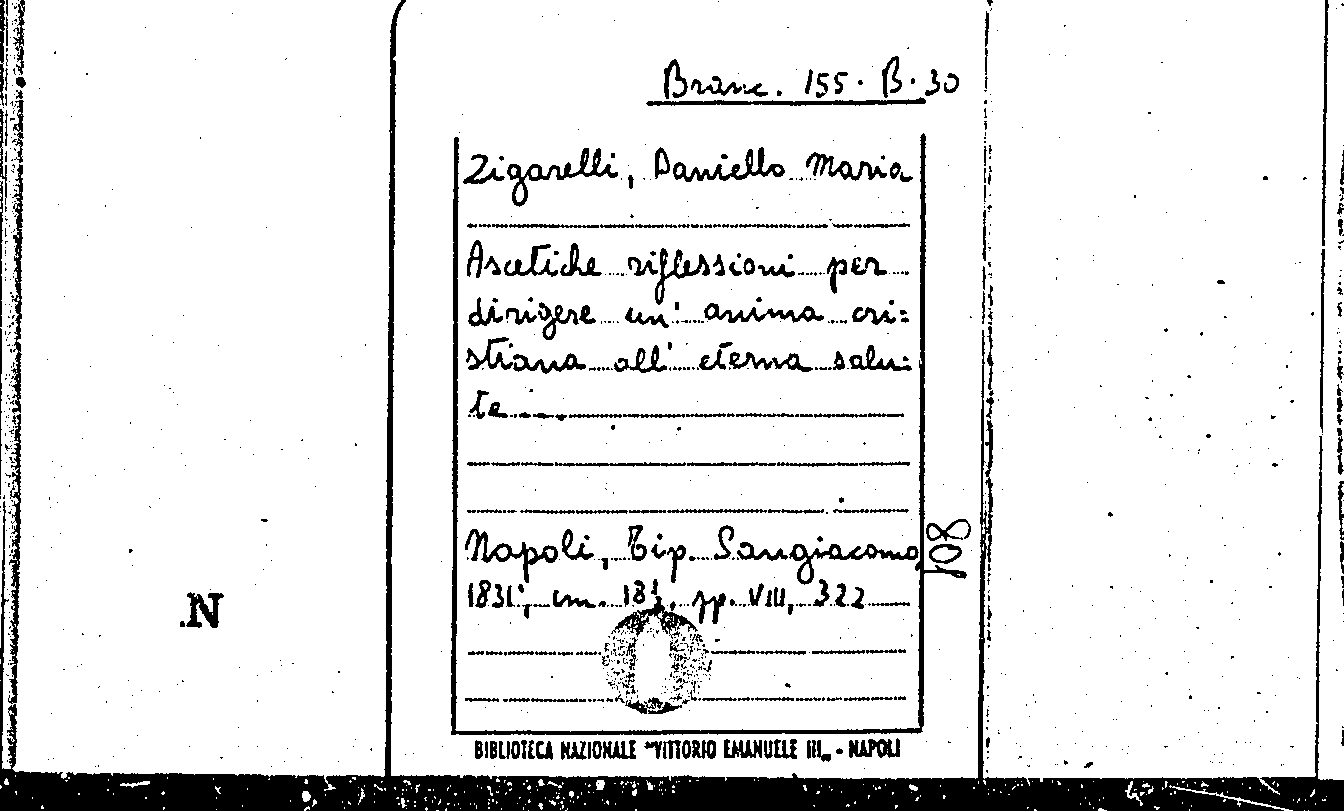 Branc. 155. B. 30
Zigarelli, Daniello Maria
Ascetiche riflessioni per
dirigere un' anima cri=
stiana all' eterna salu=
te ....
Napoli, Tip. Sangiacomo,
1831, cm. 18½, pp. VIII, 322
108
.N
BIBLIOTECA NAZIONALE "VITTORIO EMANUELE III„ - NAPOLI